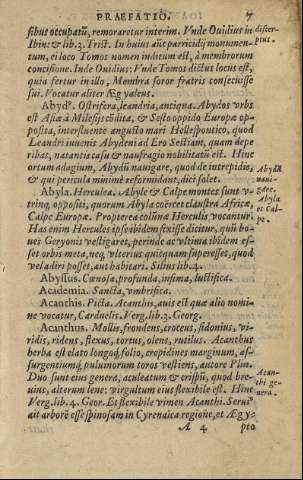 PRAEFATIO. 7
sibus occupatū, remoraretur interim. Vnde Ouidius in
Ibin: & lib. 3. Trist. In huius aūt parricidij monumen-
tum, ei loco Tomos nomen inditum est, à membrorum
concisione. Inde Ouidius: Vnde Tomos dictus locus est,
quia fertur in illo, Membra soror fratris consecuisse
sui. Vocatur aliter Æg yaleus.
Abydº. Ostrifera, leandria, antiqua. Abydos vrbs
est Asiæ à Milesijs cōdita, & Sesto oppido Europæ op-
posita, interfluente angusto mari Hellespontico, quod
Leandri iuuenis Abydeni ad Ero Sestiam, quam depe
ribat, natantis casu & naufragio nobilitatū est. Hinc
ortum adagium, Abydū nauigare, quod de intrepidis,
& qui pericula minimè reformidant, dici solet.
Abyla. Herculea. Abyle & Calpe montes sunt v-
trinq; oppositi, quorum Abyla coërcet claustra Africæ,
Calpe Europæ. Propterea colūnæ Herculis vocantur.
Has enim Hercules ipso ibidem fixisse dicitur, quū bo-
ues Geryonis vestigaret, perinde ac vltima ibidem es-
set orbis meta, neq; vlterius quicquam superesset, quod
vel adiri posset, aut habitari. Silius lib. 4.
Abyssus. Cœnosa, profunda, infima, luctifica.
Academia. Sancta, vmbrifica.
Acanthis. Picta. Acanthis, auis est quæ alio nomi-
ne vocatur, Carduelis. Verg. lib. 3. Georg.
Acanthus. Mollis, frondens, croceus, sidonius, vi-
ridis, ridens, flexus, tortus, olens, rutilus. Acanthus
herba est elato longoq́; folio, crepidines marginum, as-
surgentiumq́; puluinorum toros vestiens, autore Plin.
Duo sunt eius genera, aculeatum & crispū, quod bre-
uius, alterum lene: virgultum eius flexibile est. Hinc
Verg. lib. 4. Geor. Et flexibile vimen Acanthi. Serui9
ait arborē esse spinosam in Cyrenaica regione, et Æg y-
A 4 pto
discer-
ptus.
Abydū
naui-
gare.
Abyla
et Cal-
pe.
Acan-
thi ge-
nera.